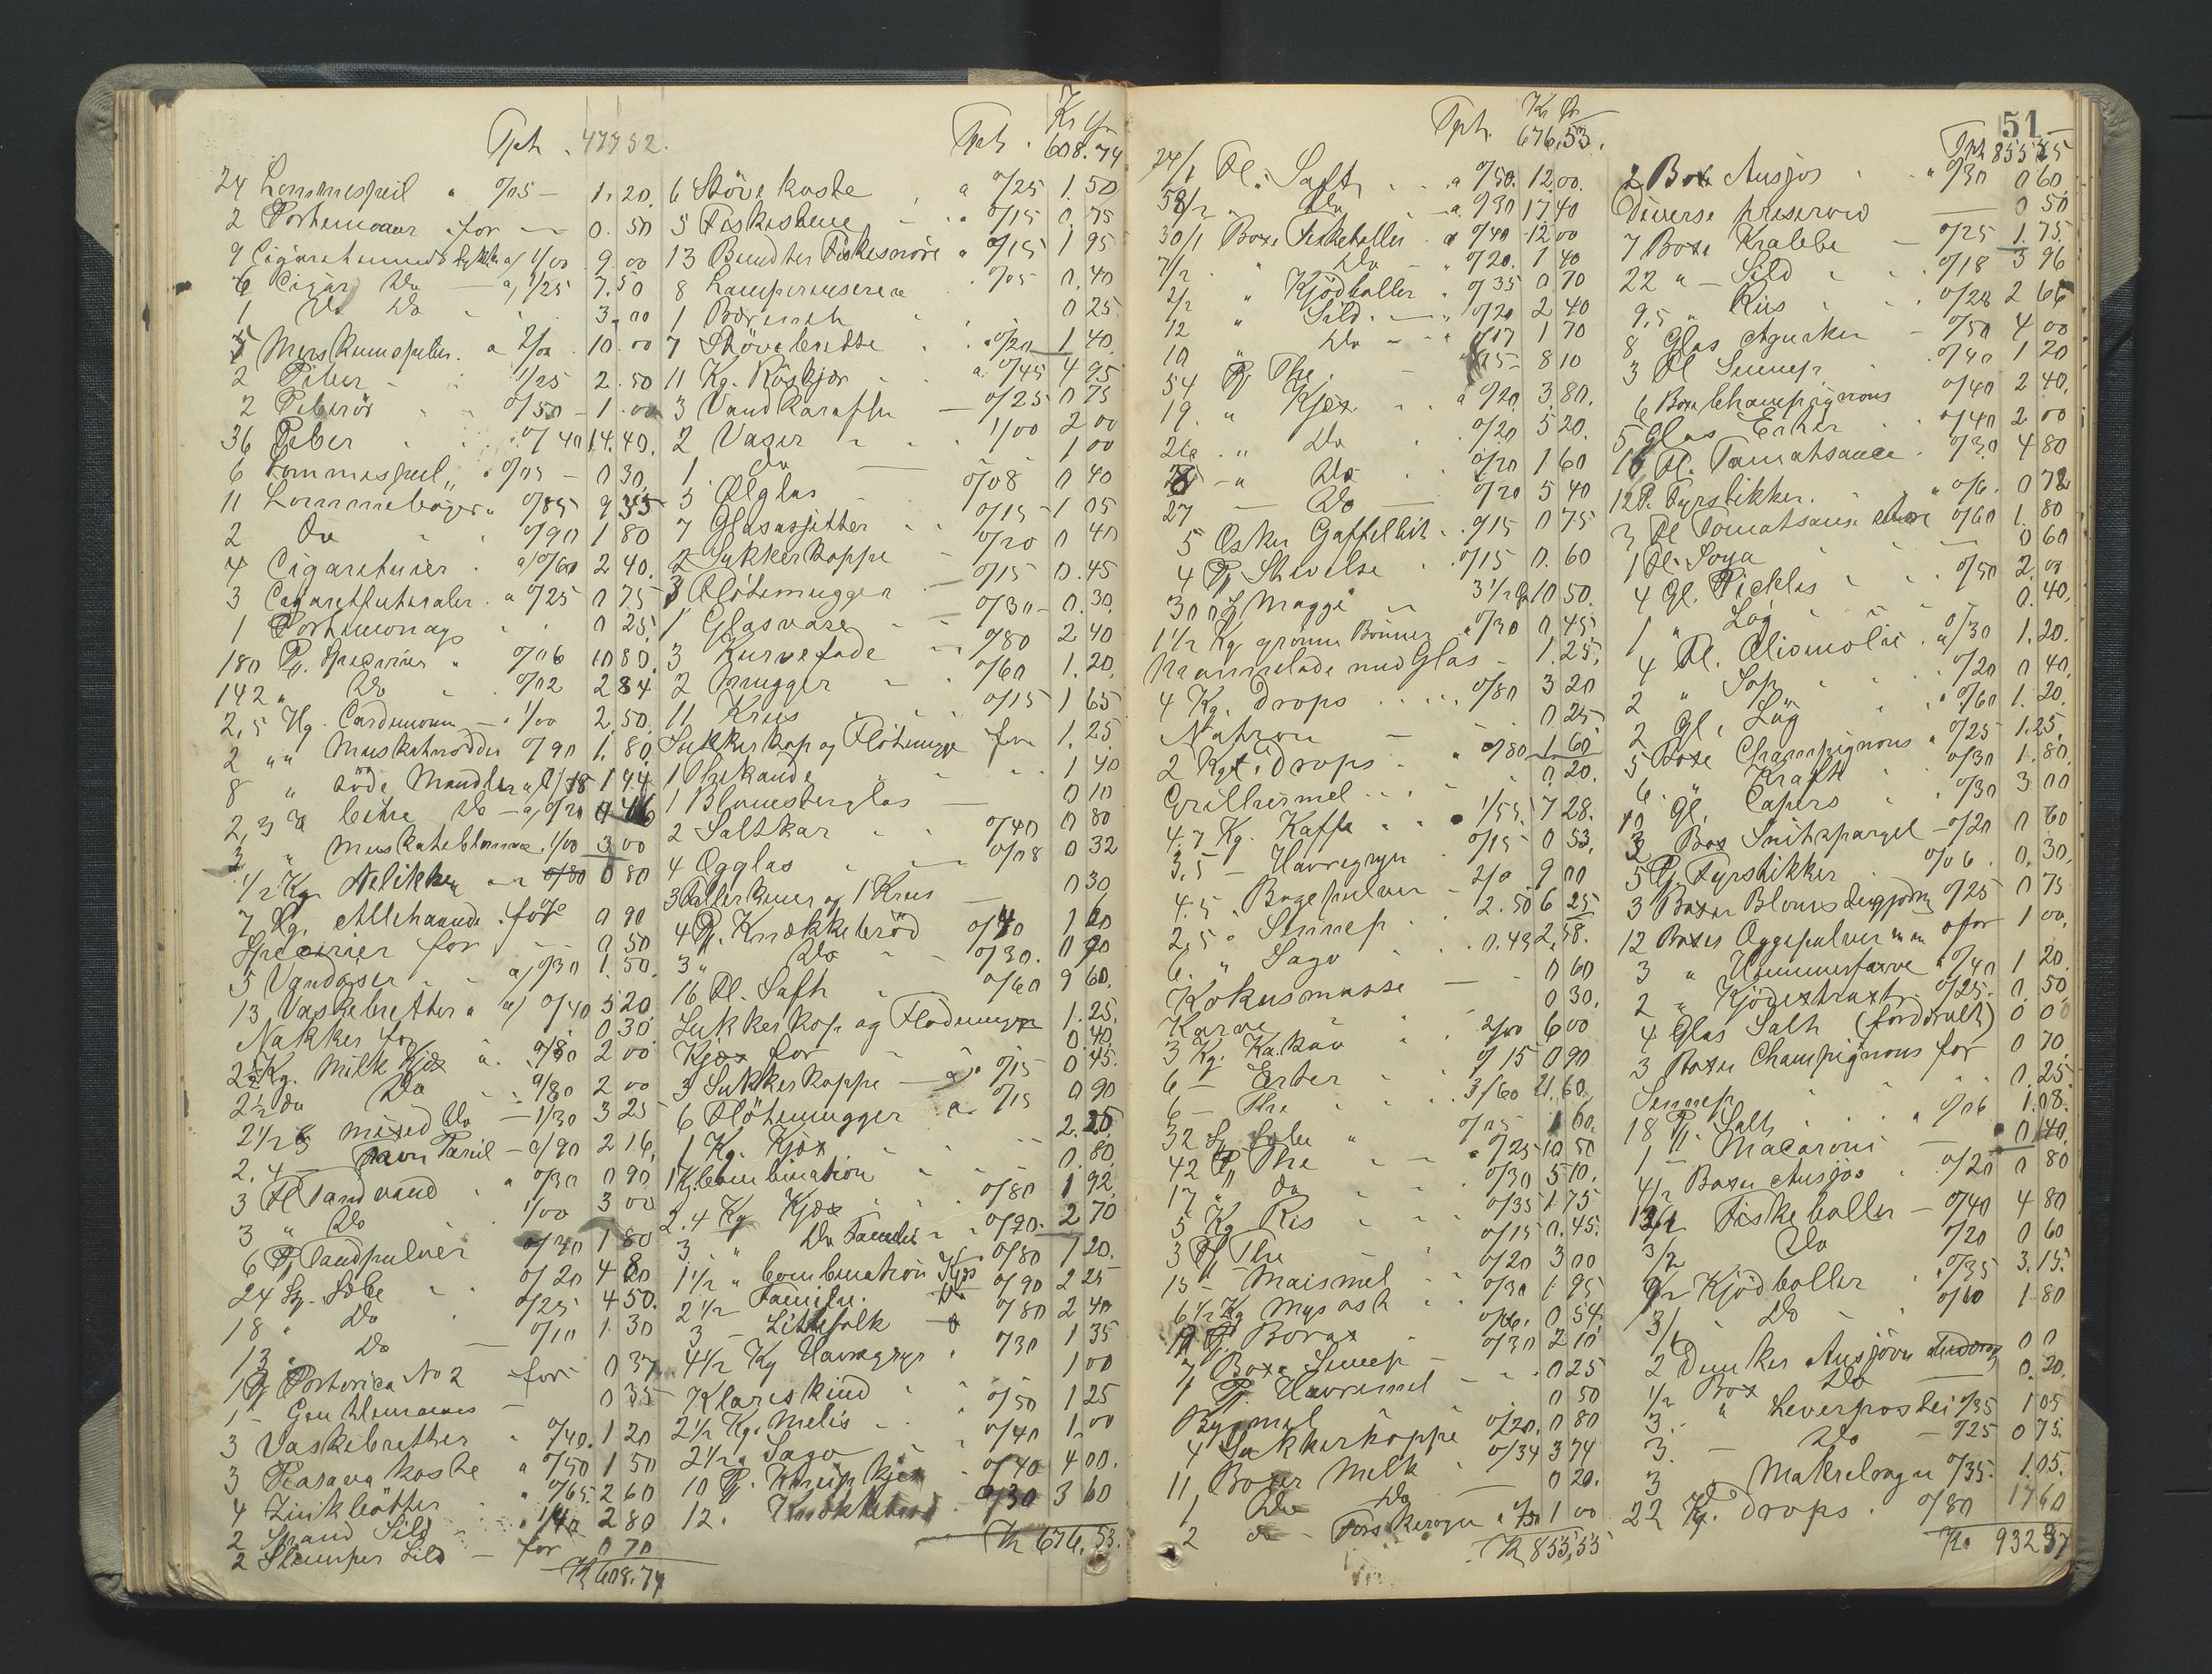 Tpt. 477 52.
24 Lommespeil a 0/05 — 1.20.
2 Portemonær for — 0.50
9 Cigaretmundstykker a 1/00 9.00
6 Cigar Do — a 1/25 7.50
1 Do Do 3.00
5 Merskumspiber a 2/00 10.00
2 Piber 1/25 2.50
2 Piberör 0/50 — 1.00
36 Piber 0/40 14.40.
6 Lommespeil „ 0/05 — 0 30
11 Lommebøger 0/85 9 35
2 Do 0/90 1 80
4 Cigaretuier a 0/60 2 40.
3 Cigaretfutteraler a 0/25 0 75
1 Portemonay 0 25
180 Pk. Specerier 0/06 10 80.
142 „ Do 0/02 2 84
2,5 Hg. Cardemome — 1/00 2 50.
2 „ „ Muskatnødder 0/90 1.80.
8 „ söde Mandler a 0/18 1 44
2,3 „ bitre Do — a 0/20 0 46
3 „ Muskateblomme 1/00 3 00
1/2 Kg Nelikker 0 80
7 Hg. Allehaande for 0 90
Specerier for 0 50
5 Vandøser a 0/30 1.50.
13 Vaskebretter a 0/40 5 20.
Nøkker for 0 30
2 1/2 Kg. Milk Kjex a 0/80 2 00
2 1/2 Do Do 0/80 2 00
2 1/2 „ mixed Do — 1/30 3 25
2.4 — 0/90 2 16
3 Fl Tandvand a 0/30 0 90
3 „ Do 1/00 3 00
6 Pk Tandpulver 0/30 1 80
24 St. Sæbe 0/20 4 80
18 „ Do 0/25 4 50.
13 „ Do — 0/10 1.30
1 Pk Portorico No 2 for 0 37
1 — Gentlemanns — 0 35
3 Vaskebretter 0/40. 1 20
3 Piasava koste a 0/50 1 50
4 Zinkbøtter 0/65. 2 60
2 Spand Sild 1/40 2 80
2 Stamper Sild — for 0 70
Kr 608.74
Tpt. Kr Ør 608.74
6 Stöve koste a 0/25 1 50
5 Fiskestene 0/15 0.75
13 Bundter Fiskesnöre a 0/15 1 95
8 Lamperensere 0/05 0.40
1 0 25
7 Stövebrette 0/20 1 40.
11 Kg. a 0/45 4 95
3 Vandkarafler — 0/25 0 75
2 Vaser 1/00 2 00
1 Do 1 00
5 Ølglas 0/08 0 40
7 Glasasjetter 0/15 1 05
2 Sukkerkoppe 0/20 0 40
3 Fløtemugger 0/15 0.45
1 Glasvase 0/30 0.30.
3 Kurvefade 0/80 2 40
2 Mugger 0/60 1.20.
11 Krus 0/15 1 65
Sukkerkop og Flötemugge for 1.25.
1 Thekande 1 40
1 Blomsterglas — 0 10
2 Saltkar 0/40 0 80
4 Ægglas 0/08 0 32
3 Tallerkener og 1 Krus — 0 30
4 Pk. Knækkebröd
3 „ Do 0/30. 0 90
16 Fl. Saft 0/60 9 60.
Sukkerkop og Flödemugge 1.25.
Kjex for 0.40
3 Sukkerkoppe — a 0/15 0.45.
6 Flötemugger a 0/15 0 90
1 Kg. Kjex
1 K. Combination 0.80.
2.4 Kg Kjex 0/80 1 92.
3 „ Do Familie 0/90. 2 70
1 1/2 „ Combination Kjex 0/80 1 20.
2 1/2 Familie Do 0/90 2 25
3 — Littlefolk — 0/80 2 40
4 1/2 Kg Havregryn 0/30 1 35
Klareskind 1 00
2 1/2 Kg. Melis 0/50 1 25
2 1/2 „ Sago 0/40 1.00
10 Pk. Kneip kjex 0/40 4 00.
12 „ Knækkebröd 0/30 3 60
Kr 676.53.
Tpt. Kr Ør 676.53.
24/1 Fl. Saft a 0/50. 12 00.
58/2 „ Do — a. 0/30 17 40
30/1 Boxe Fiskeboller a 0/40 12 00
7/2 „ Do — 0/20. 1 40
2/2 „ Kjödboller 0/35 0 70
12 „ Sild. — 0/20 2 40
10 „ Do — 0/17 1 70
54 Pk The. 0/15 — 8 10
19 „ Kjex a 0/20 3.80.
26 „ Do 0/20 5 20.
8 — „ Do 0/20 1 60
27 — Do — 0/20 5 40
5 Esker Gaffelbit 0/15 0 75
4 Pk Stivelse 0/15 0.60
300 g Maggi 3 1/2 Ør 10 50.
1 1/2 Kg grönne Bönner 0/30 0 45
Marmelade med Glas — 1.25.
4 Kg. Drops 0/80 3 20
Natron — 0 25
2 Kg drops 0/80 1 60
Grillermel 0 20.
4.7 Kg. Kaffe 1/55. 7 28.
3.5 — Havregryn 0/15 0 53.
4.5 „ Bagepulver — 2/0 9 00
2,5 „ Sennep 2.50 6 25
6. „ Sago 0.43 2.58.
Kokusmasse — 0 60
Karve 0 30.
3 Kg. Kakao 2/00 6 00
6 — Erter 0/15 0 90
6 — The 3/60 21.60.
32 St. Sæbe
42 Pk The a 0/25 10 50
17 „ Do 0/30 5 10.
5 Kg Ris 0/35 1.75
3 Pk The 0/15 0.45.
15 „ Maismel 0/20 3 00
6 1/2 Kg Mysost 0/30 1 95
9 Pk Borax 0/06. 0 54.
7 Boxe Sennep — 0/30 2 10
1 Pk. Havremel — 0 25
Bygmel 0 50
4 Sukkerkoppe 0/20. 0 80
11 Boxer Melk 0/34 3 74
1 Do Do — 0 20.
2 Do — Torskerogn a 0/50 1 00
Kr 855,55
51
Tpt 855 55
2 Box Ansjos 0/30 0 60
Diverse preserves — 0 50
7 Boxe Krabbe — 0/25 1.75.
22 „ — Sild 0/18 3 96
9.5 „ Ris 0/28 2 66
8 Glas Agurker — 0/50 4 00
3 Fl Sennep 0/40 1 20
6 Box Champignons 0/40 2 40.
5 Glas Erter 0/40 2 00
16 Fl. Tomatsauce 0/30 4 80
12 P. Fyrstikker. 0/6. 0 72
3 Fl Tomatsaus större 0/60 1.80
1 Fl. Soya — 0 60
4 Gl. Pickles 0/50 2.00
1 „ Løg 0.40.
4 Fl. a 0/30 1.20.
2 „ Sop 0/20 0 40.
2 Gl. Løg 0/60 1.20.
5 Boxe Champignons a 0/25 1.25.
6. „ Kraft 0/30 1.80.
10 Gl. Capers 0/30 3 00
3 Box Snitspargel — 0/20 0 60
5 Pk Fyrstikker 0/06. 0.30.
3 Boxer Blomstergjødning 0/25 0 75
12 Boxer Æggepulver m m for 1 00.
3 „ Hummerfarve 0/40 1 20
2 „ Kjödextrakt 0/25. 0.50
4 Glas Salt (fordærvet) 0 00
3 Boxer Champignons for 0 70
Sennep 0.25
18 Pk. Salt 0/06 1.08.
1 — Macaroni — 0 40.
4/2 Boxer Ansjos 0/20 0 80
12/1 Fiskeboller — 0/40 4 80
3/2 Do 0/20 0 60
9/2 Kjödboller 0/35 3.15.
3/1 Do 0/60 1 80
2 Dunker Ansjovis 0 0
1/2 Box Do — 0.20.
3 „ Leverpostei 0/35 1 05
3. — Do — 0/25 0 75.
3 „ Makrelrogn 0/35. 1.05.
22 Kg. drops. 0/80 17 60
Kr. 932 37